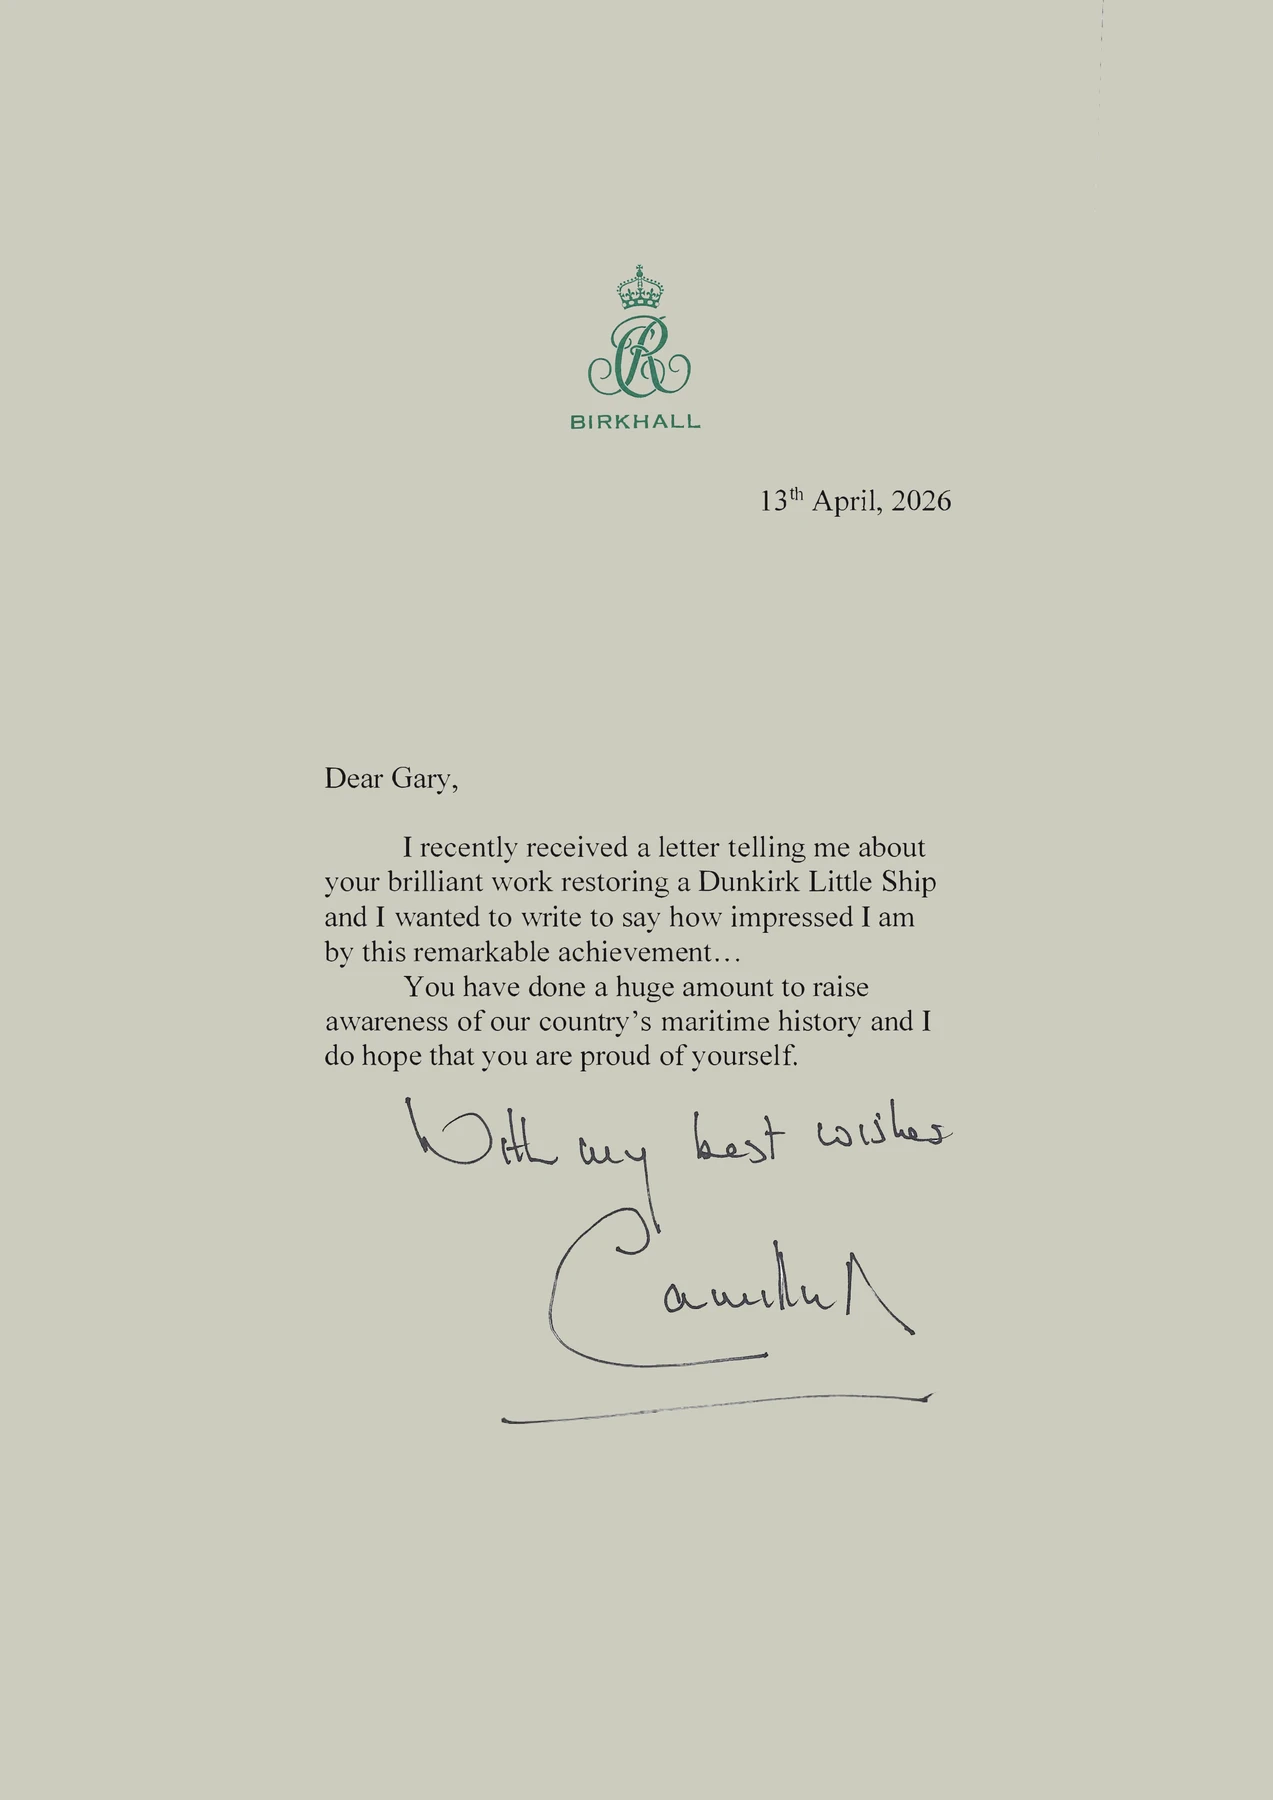 CR
BIRKHALL
13th April, 2026
Dear Gary,
I recently received a letter telling me about
your brilliant work restoring a Dunkirk Little Ship
and I wanted to write to say how impressed I am
by this remarkable achievement…
You have done a huge amount to raise
awareness of our country’s maritime history and I
do hope that you are proud of yourself.
With my best wishes
Camilla R